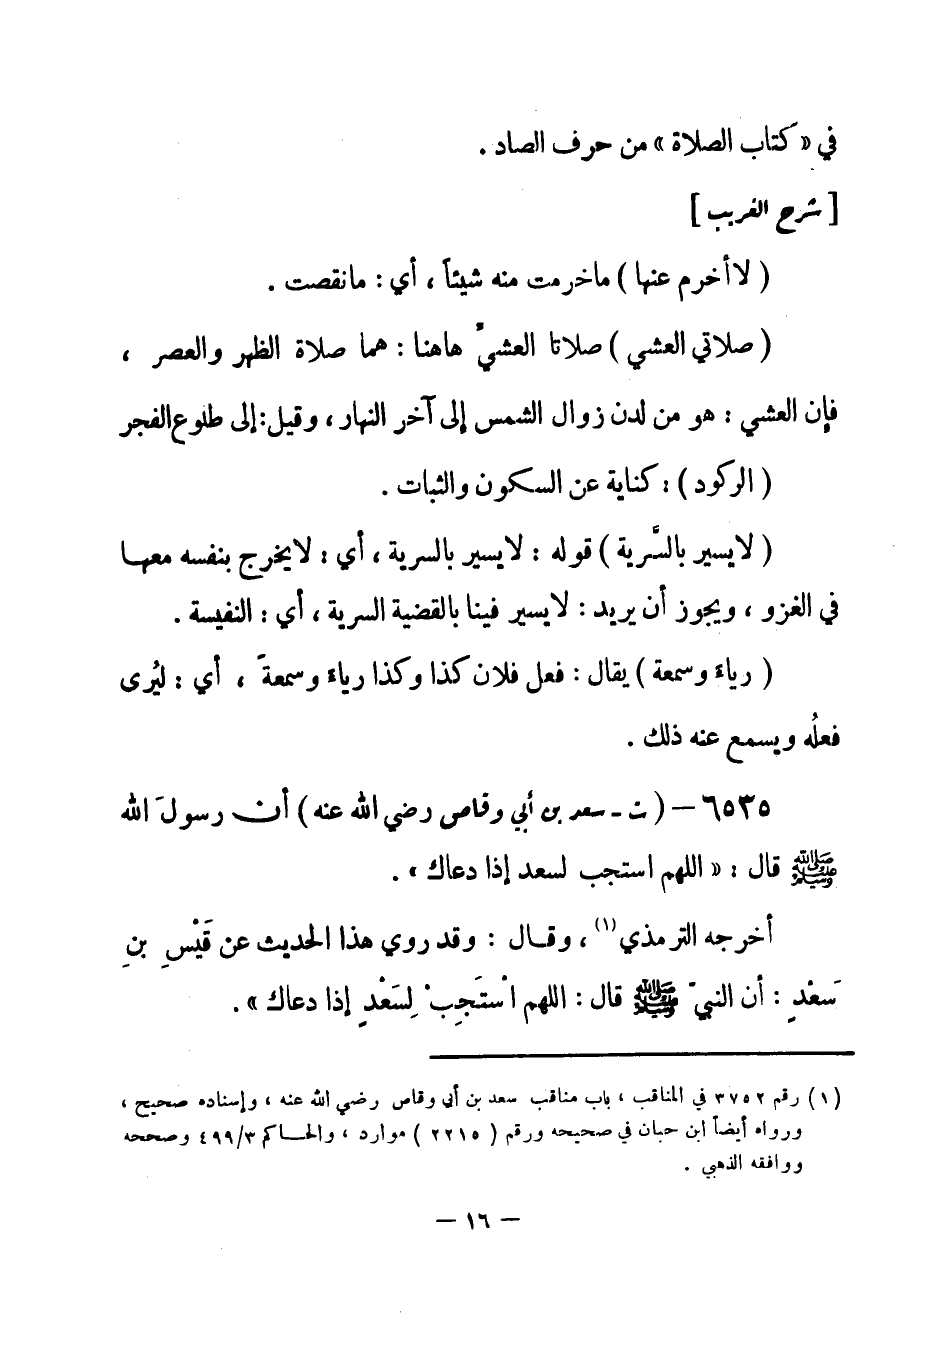 في « كتاب الصلاة » من حرف الصاد .
[ شرح الغريب ]
( لا أخرم عنها ) ماخرمت منه شيئاً ، أي : مانقصت .
( صلاتي العشي ) صلاتا العشيِّ هاهنا : هما صلاة الظهر والعصر ،
فإن العشي : هو من لدن زوال الشمس إلى آخر النهار ، وقيل : إلى طلوع الفجر
( الركود ) : كناية عن السكون والثبات .
( لايسير بالسَّرية ) قوله : لايسير بالسرية ، أي : لايخرج بنفسه معها
في الغزو ، ويجوز أن يريد : لايسير فينا بالقضية السرية ، أي : النفيسة .
( رياءً وسمعة ) يقال : فعل فلان كذا وكذا رياءً وسمعةً ، أي : ليُرى
فعلُه ويسمع عنه ذلك .
٦٥٣٥ – ( ت - سعد بن أبي وقاص رضي الله عنه ) أن رسولَ الله
ﷺ قال : « اللهم استجب لسعد إذا دعاك » .
أخرجه الترمذي (١) ، وقال : وقد روي هذا الحديث عن قَيْسِ بنِ
سَعْدٍ : أن النبيَّ ﷺ قال : اللهم اسْتَجِبْ لِسَعْدٍ إذا دعاك » .
(١) رقم ٣٧٥٢ في المناقب ، باب مناقب سعد بن أبي وقاص رضي الله عنه ، وإسناده صحيح ،
ورواه أيضاً ابن حبان في صحيحه ورقم ( ٢٢١٥ ) موارد ، والحاكم ٤٩٩/٣ وصححه
ووافقه الذهبي .
– ١٦ –